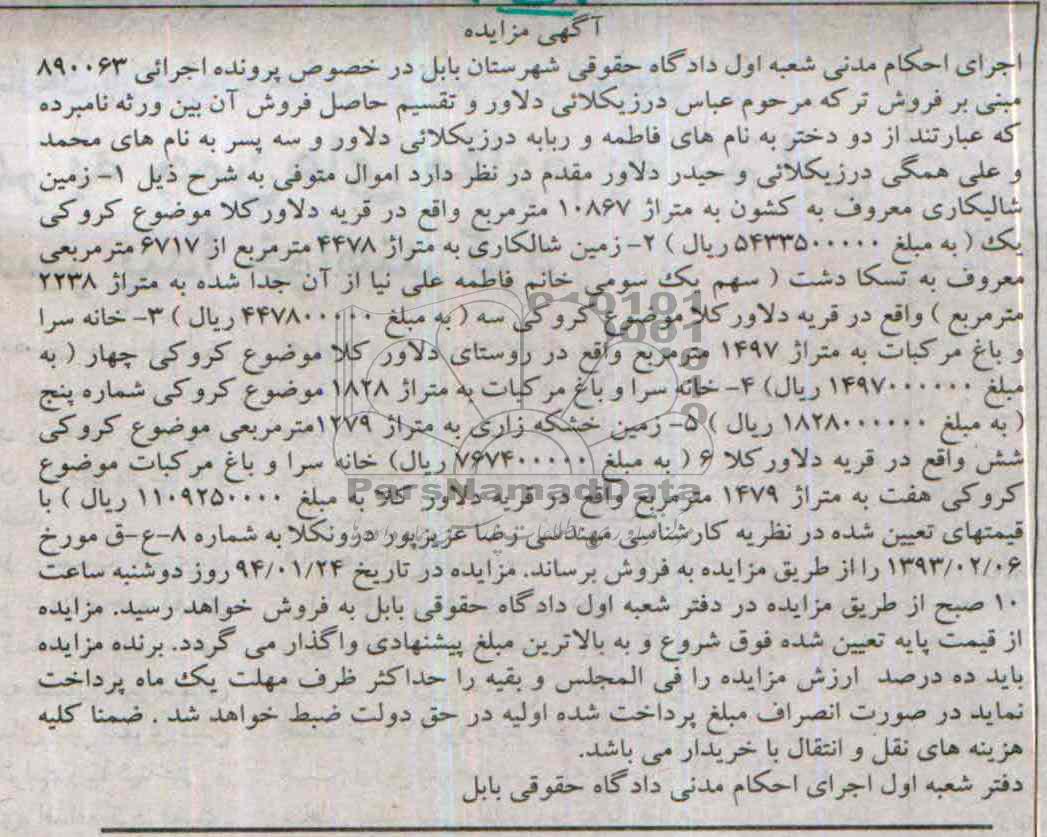 آگهی مزایده
اجرای احکام مدنی شعبه اول دادگاه حقوقی شهرستان بابل در خصوص پرونده اجرائی ۸۹۰۰۶۳
مبنی بر فروش ترکه مرحوم عباس درزیکلائی دلاور و تقسیم حاصل فروش آن بین ورثه نامبرده
که عبارتند از دو دختر به نام های فاطمه و ربابه درزیکلائی دلاور و سه پسر به نام های محمد
و علی همگی درزیکلائی و حیدر دلاور مقدم در نظر دارد اموال متوفی به شرح ذیل ۱- زمین
شالیکاری معروف به کشون به متراژ ۱۰۸۶۷ مترمربع واقع در قریه دلاورکلا موضوع کروکی
یک ( به مبلغ ۵۴۳۳۵۰۰۰۰۰ ریال ) ۲- زمین شالکاری به متراژ ۴۴۷۸ مترمربع از ۶۷۱۷ مترمربعی
معروف به تسکا دشت ( سهم یک سومی خانم فاطمه علی نیا از آن جدا شده به متراژ ۲۲۳۸
مترمربع ) واقع در قریه دلاورکلا موضوع کروکی سه ( به مبلغ ۴۴۷۸۰۰۰۰۰ ریال ) ۳- خانه سرا
و باغ مرکبات به متراژ ۱۴۹۷ مترمربع واقع در روستای دلاور کلا موضوع کروکی چهار ( به
مبلغ ۱۴۹۷۰۰۰۰۰۰ ریال) ۴- خانه سرا و باغ مرکبات به متراژ ۱۸۲۸ موضوع کروکی شماره پنج
( به مبلغ ۱۸۲۸۰۰۰۰۰۰ ریال ) ۵- زمین خشکه زاری به متراژ ۱۲۷۹مترمربعی موضوع کروکی
شش واقع در قریه دلاورکلا ۶ ( به مبلغ ۷۶۷۴۰۰۰۰۰ ریال) خانه سرا و باغ مرکبات موضوع
کروکی هفت به متراژ ۱۴۷۹ مترمربع واقع در قریه دلاور کلا به مبلغ ۱۱۰۹۲۵۰۰۰۰ ریال ) با
قیمتهای تعیین شده در نظریه کارشناسی مهندسی رضا عزیزپور درونکلا به شماره ۸-ع-ق مورخ
۱۳۹۳/۰۲/۰۶ را از طریق مزایده به فروش برساند. مزایده در تاریخ ۹۴/۰۱/۲۴ روز دوشنبه ساعت
۱۰ صبح از طریق مزایده در دفتر شعبه اول دادگاه حقوقی بابل به فروش خواهد رسید. مزایده
از قیمت پایه تعیین شده فوق شروع و به بالاترین مبلغ پیشنهادی واگذار می گردد. برنده مزایده
باید ده درصد ارزش مزایده را فی المجلس و بقیه را حداکثر ظرف مهلت یک ماه پرداخت
نماید در صورت انصراف مبلغ پرداخت شده اولیه در حق دولت ضبط خواهد شد . ضمنا کلیه
هزینه های نقل و انتقال با خریدار می باشد.
دفتر شعبه اول اجرای احکام مدنی دادگاه حقوقی بابل
ParsNamadData